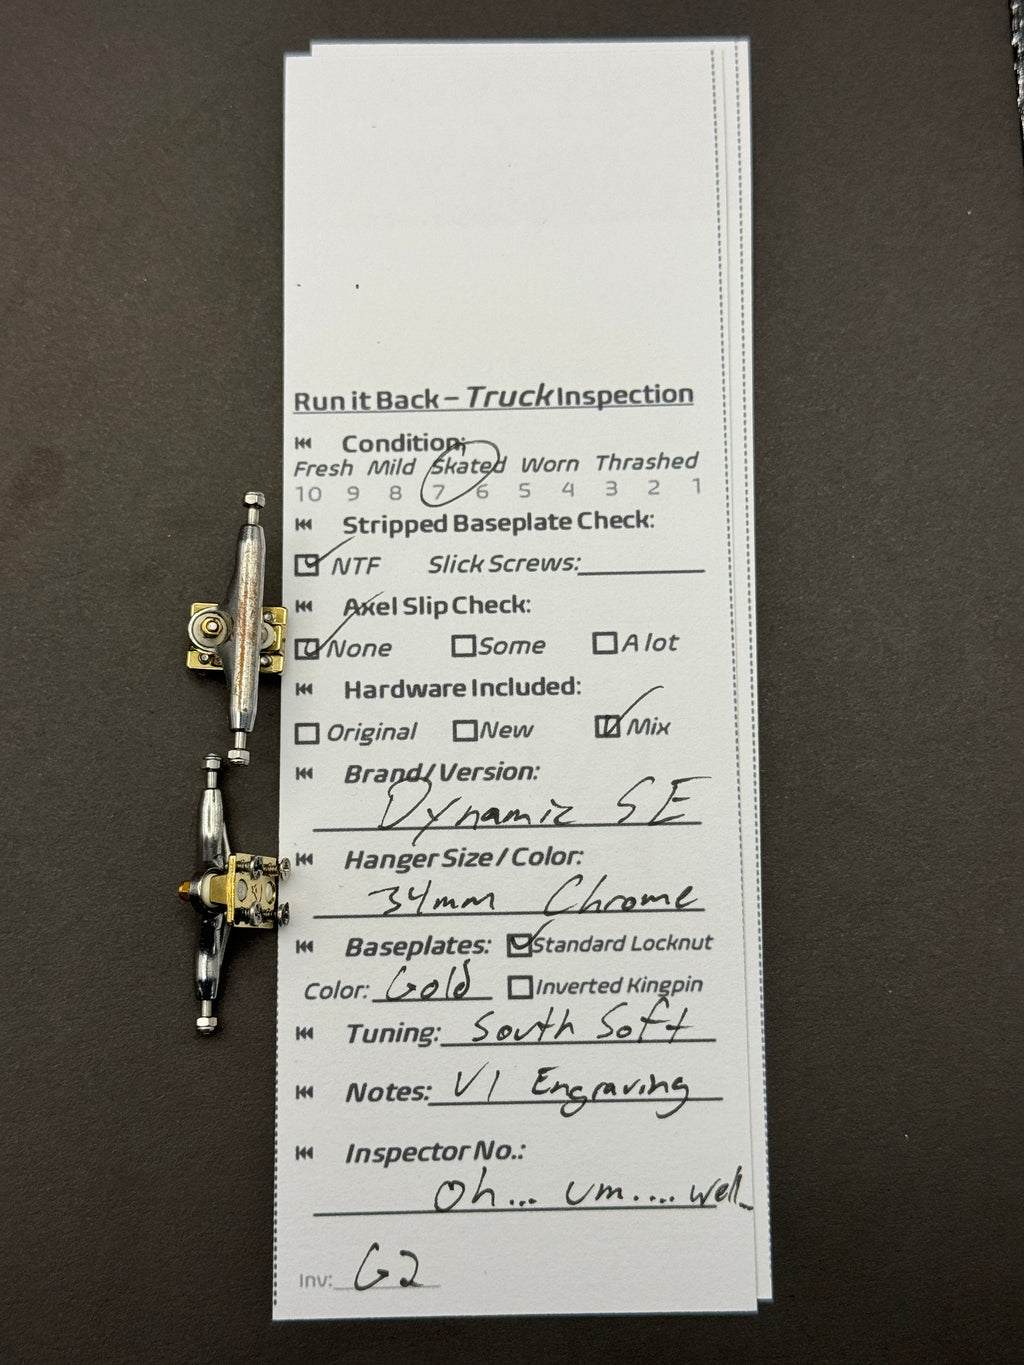 Run it Back – Truck Inspection
Condition:
Fresh Mild Skated Worn Thrashed
10 9 8 7 6 5 4 3 2 1
Stripped Baseplate Check:
NTF Slick Screws:
Axel Slip Check:
None Some A lot
Hardware Included:
Original New Mix
Brand/Version:
Dynamic SE
Hanger Size / Color:
34mm Chrome
Baseplates: Standard Locknut
Color: Gold Inverted Kingpin
Tuning: South Soft
Notes: V1 Engraving
Inspector No.:
Oh... um.... well
Inv: G2